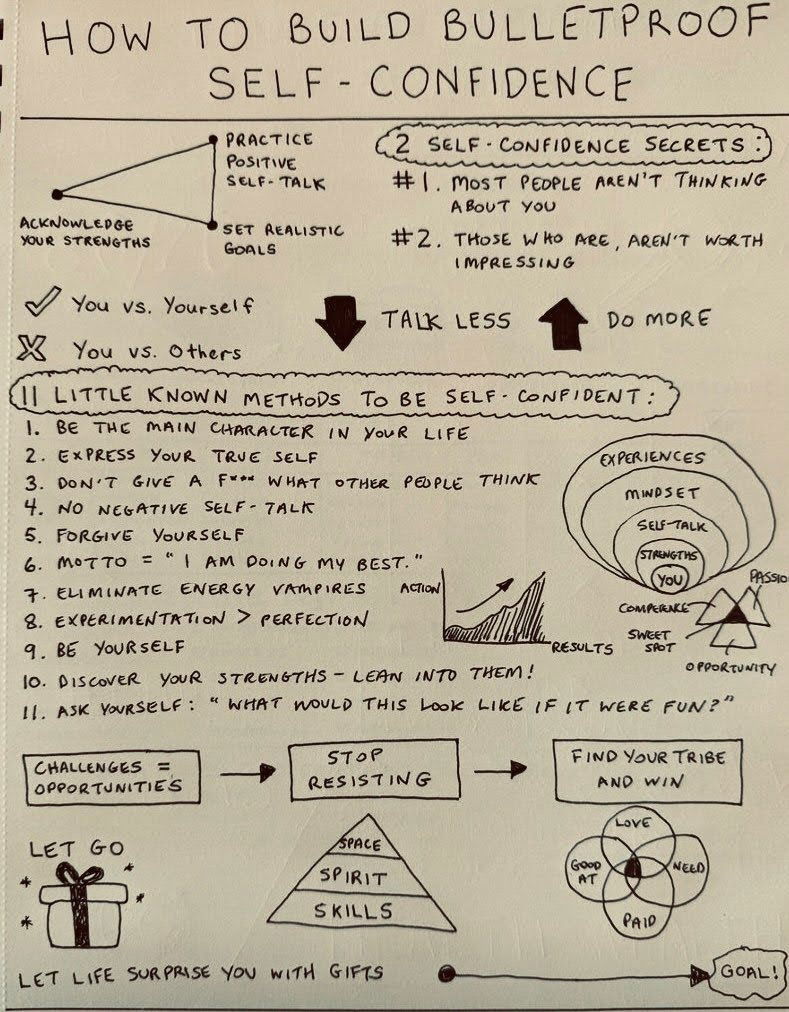 HOW TO BUILD BULLETPROOF
SELF-CONFIDENCE
PRACTICE
POSITIVE
SELF-TALK
ACKNOWLEDGE
YOUR STRENGTHS
SET REALISTIC
GOALS
2 SELF-CONFIDENCE SECRETS:
#1. MOST PEOPLE AREN'T THINKING
ABOUT YOU
#2. THOSE WHO ARE, AREN'T WORTH
IMPRESSING
You vs. Yourself
You vs. Others
TALK LESS
DO MORE
11 LITTLE KNOWN METHODS TO BE SELF-CONFIDENT:
1. BE THE MAIN CHARACTER IN YOUR LIFE
2. EXPRESS YOUR TRUE SELF
3. DON'T GIVE A F*** WHAT OTHER PEOPLE THINK
4. NO NEGATIVE SELF-TALK
5. FORGIVE YOURSELF
6. MOTTO = "I AM DOING MY BEST."
7. ELIMINATE ENERGY VAMPIRES
8. EXPERIMENTATION > PERFECTION
9. BE YOURSELF
10. DISCOVER YOUR STRENGTHS - LEAN INTO THEM!
11. ASK YOURSELF: "WHAT WOULD THIS LOOK LIKE IF IT WERE FUN?"
ACTION
RESULTS
EXPERIENCES
MINDSET
SELF-TALK
STRENGTHS
YOU
PASSIO
COMPETENCE
SWEET
SPOT
OPPORTUNITY
CHALLENGES =
OPPORTUNITIES
STOP
RESISTING
FIND YOUR TRIBE
AND WIN
LET GO
SPACE
SPIRIT
SKILLS
LOVE
GOOD
AT
NEED
PAID
LET LIFE SURPRISE YOU WITH GIFTS
GOAL!